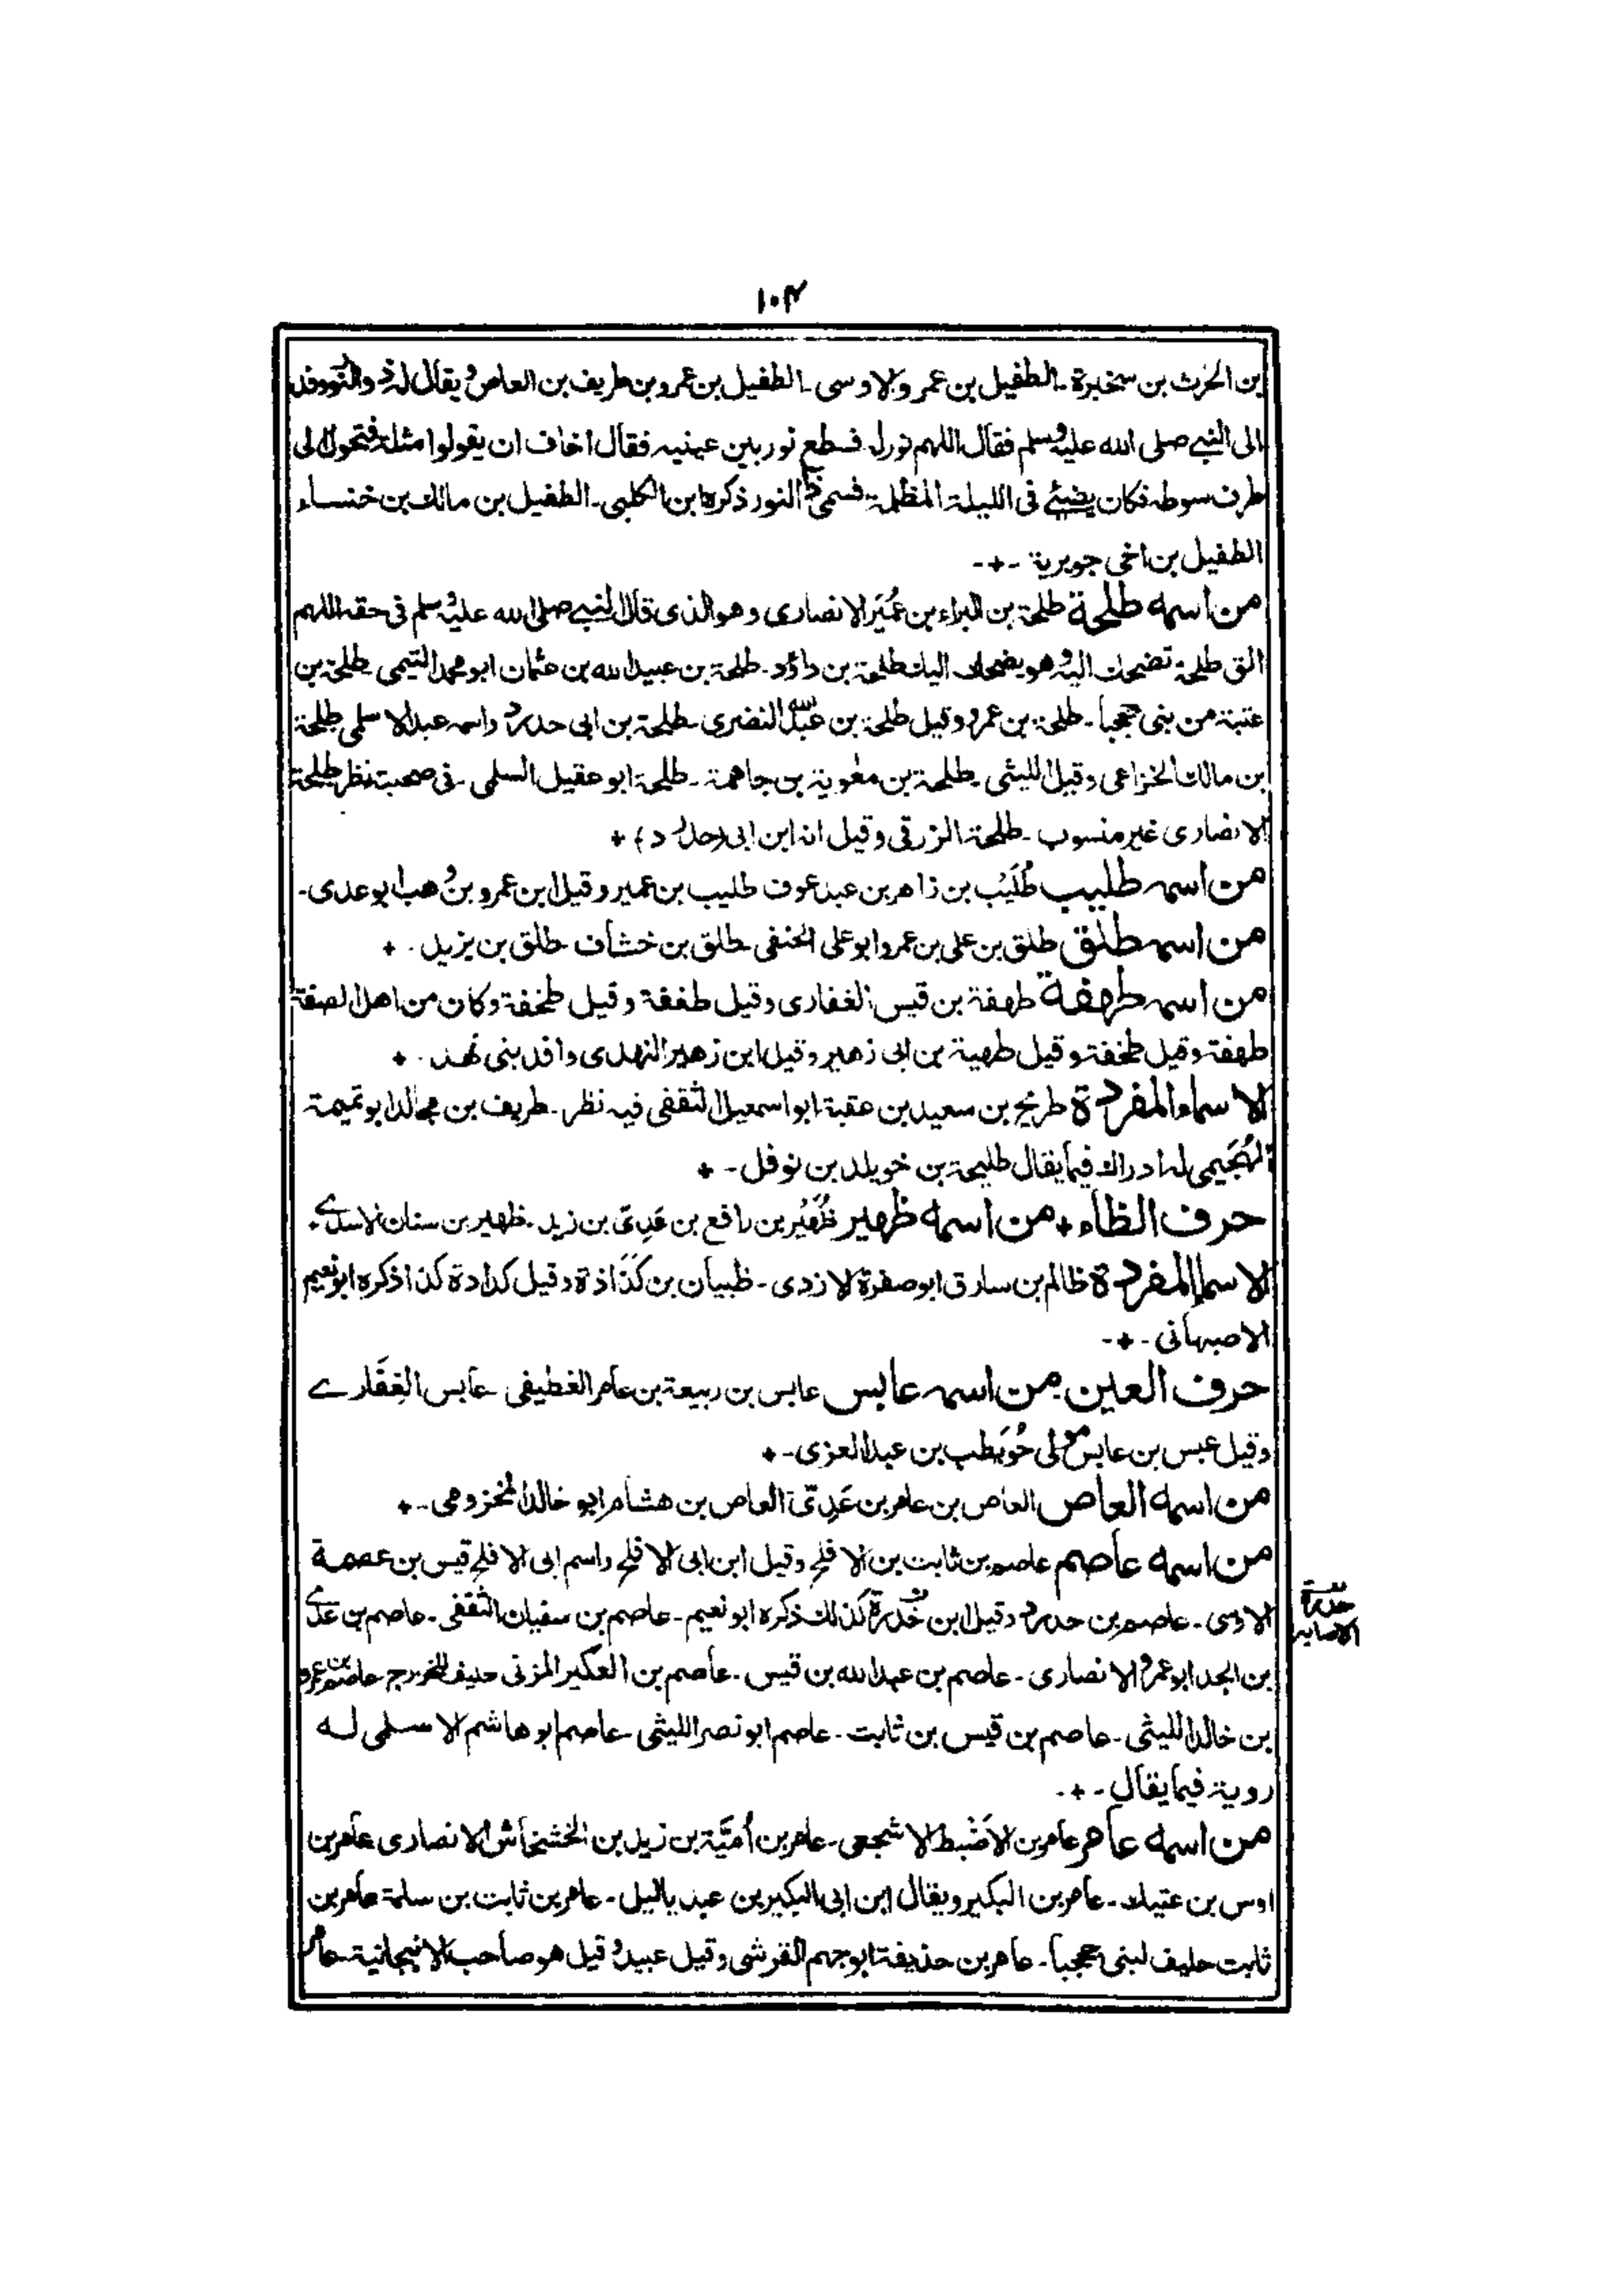 ١٠٤
بن الحرث بن سخبرة ـ الطفيل بن عمرو الاوسى ـ الطفيل بن عمرو بن طريف بن العاص ويقال له ذو النور وفد
الى النبي صلى الله عليه وسلم فقال اللهم نور له فسطع نور بين عينيه فقال اخاف ان يقولوا مثلة فتحول الى
طرف سوطه فكان يضيئ فى الليلة المظلمة فسمى ذا النور ذكره ابن الكلبى ـ الطفيل بن مالك بن خنساء
الطفيل بن اخى جويرية ـ+ـ
من اسمه طلحة طلحة بن البراء بن عُمَير الانصارى وهو الذى قال النبي صلى الله عليه وسلم فى حقه اللهم
الق طلحة تضحك اليه وهو يضحك اليك طلحة بن داؤد ـ طلحة بن عبيد الله بن عثمان ابو محمد التيمى طلحة بن
عتبة من بنى جحجبا ـ طلحة بن عمرو وقيل طلحة بن عبد الله النضرى ـ طلحة بن ابى حدرد واسمه عبد الاسلمى طلحة
بن مالك الخزاعى وقيل الليثى ـ طلحة بن معٰوية بن جاهمة ـ طلحة ابو عقيل السلمى ـ فى صحبته نظر طلحة
الانصارى غير منسوب ـ طلحة الزرقى وقيل انه ابن ابى (حدرد) +
من اسمه طليب طُلَيْب بن زاهر بن عبد عوف طليب بن عمير وقيل ابن عمرو بن وهب ابو عدى ـ
من اسمه طلق طلق بن على بن عمرو ابو على الحنفى طلق بن خشاف طلق بن يزيد ـ +
من اسمه طهفة طهفة بن قيس الغفارى وقيل طغفة وقيل طخفة وكان من اهل الصفة
طهفة وقيل طخفة وقيل طهية بن ابى زهير وقيل ابن زهير النهدى وافد بنى نهد ـ +
الاسماء المفردة طريح بن سعيد بن عقبة ابو اسمعيل الثقفى فيه نظر ـ طريف بن مجالد ابو تميمة
الهُجَيمى له ادراك فيما يقال طليحة بن خويلد بن نوفل ـ +
حرف الظاء + من اسمه ظهير ظُهَيْر بن رافع بن عَدِىّ بن زيد ـ ظهير بن سنان الاسدے ـ
الاسماء المفردة ظالم بن سارق ابو صفرة الازدى ـ ظبيان بن كَدَاذة وقيل كدادة كذا ذكره ابو نعيم
الاصبهانى ـ+ـ
حرف العين من اسمه عابس عابس بن ربيعة بن عامر الغطيفى عابس الغِفَارے
وقيل عبس بن عابس مولى حُوَيطب بن عبد العزى ـ+
من اسمه العاص العاص بن عامر بن عَدِىّ العاص بن هشام ابو خالد المخزومى ـ+
من اسمه عاصم عاصم بن ثابت بن الاقلح وقيل ابن ابى الاقلح واسم ابى الاقلح قيس بن عصمة
الاوسى ـ عاصم بن حدرد وقيل ابن حُدرة كذلك ذكره ابو نعيم ـ عاصم بن سفيان الثقفى ـ عاصم بن عدے
حدرة
الاصابه
بن الجد ابو عمرو الانصارى ـ عاصم بن عبد الله بن قيس ـ عاصم بن العكير المزنى حليف للخزرج عاصم بن عمرو
بن خالد الليثى ـ عاصم بن قيس بن ثابت ـ عاصم ابو نصر الليثى ـ عاصم ابو هاشم الاسلمى له
روية فيما يقال ـ+ـ
من اسمه عامر عامر بن الاَضْبط الاشجعى ـ عامر بن اُمَيَّة بن زيد بن الخشخاش الانصارى عامر بن
اوس بن عتيك ـ عامر بن البكير ويقال ابن ابى البكير بن عبد ياليل ـ عامر بن ثابت بن سلمة عامر بن
ثابت حليف لبنى جحجبا ـ عامر بن حذيفة ابو جهم القرشى وقيل عبيد وقيل هو صاحب الانبجانية ـ عامر